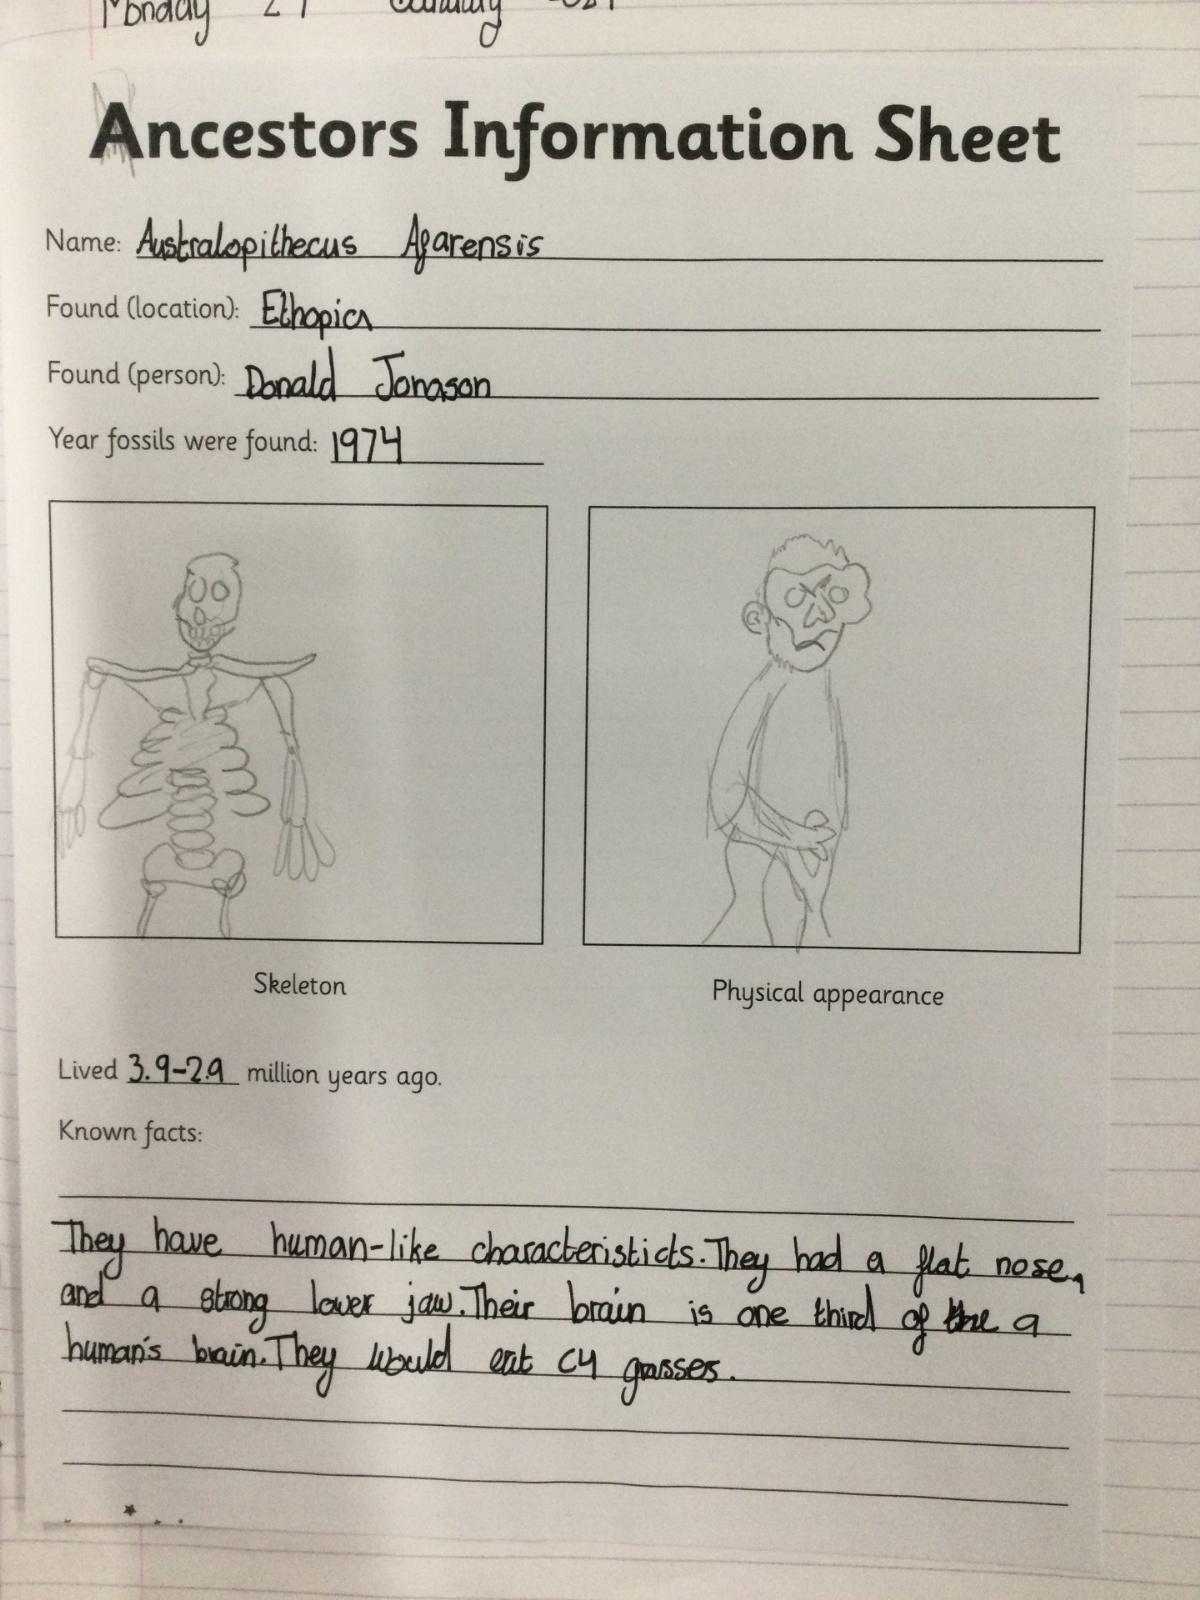 Monday
Ancestors Information Sheet
Name: Australopithecus Afarensis
Found (location): Ethopica
Found (person): Donald Jonason
Year fossils were found: 1974
Skeleton
Physical appearance
Lived 3.9-2.9 million years ago.
Known facts:
They have human-like characteristicts. They had a flat nose,
and a strong lower jaw. Their brain is one third of the a
human's brain. They would eat C4 grasses.